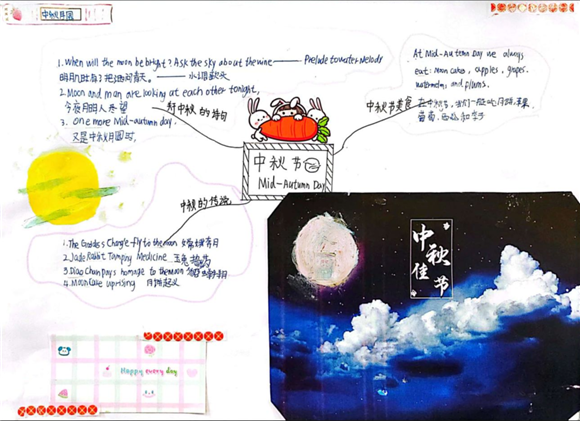 中秋月圆
1. When will the moon be bright? Ask the sky about the wine —— Prelude to Water Melody
明月几时有?把酒问青天。——水调歌头
2. Moon and man are looking at each other tonight,
今夜月明人尽望
3. one more Mid-autumn day.
又是中秋月圆时,
中秋的诗句
At Mid-Autumn Day we always
eat: moon cakes, apples, grapes,
watermelons, and plums.
中秋节美食
中秋节
Mid-Autumn Day
中秋的传说
1. The Goddess Chang'e fly to the moon 嫦娥奔月
2. Jade Rabbit Tamping Medicine 玉兔捣药
3. Diao Chan pays homage to the moon
4. Moon Cake uprising 月饼起义
中秋
佳节
Happy every day